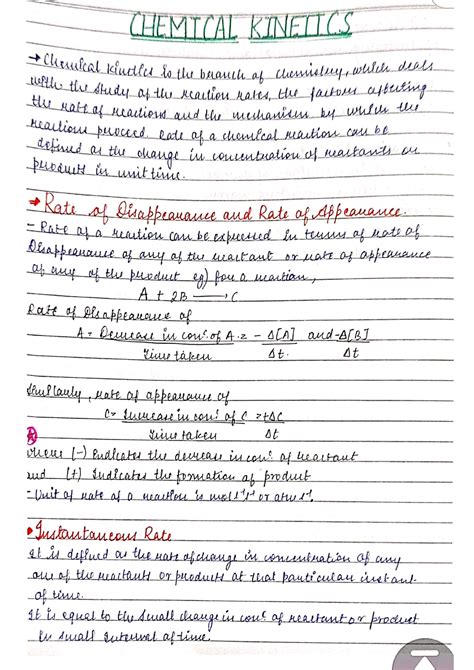 CHEMICAL KINETICS
→ Chemical kinetics is the branch of chemistry, which deals
with the study of the reaction rates, the factors affecting
the rate of reactions and the mechanism by which the
reactions proceed. Rate of a chemical reaction can be
defined as the change in concentration of reactants or
products in unit time.
→ Rate of Disappearance and Rate of Appearance.
- Rate of a reaction can be expressed in terms of rate of
Disappearance of any of the reactant or rate of appearance
of any of the product eg) for a reaction,
A + 2B ⟶ C
Rate of Disappearance of
A = Decrease in conc. of A = - Δ[A] and -Δ[B]
Time taken Δt. Δt
Similarly, rate of appearance of
C = Increase in conc. of C = +ΔC
Time taken Δt
where (-) Indicates the decrease in conc. of reactant
and (+) Indicates the formation of product
- Unit of rate of a reaction is
• Instantaneous Rate
It is defined as the rate of change in concentration of any
one of the reactants or products at that particular instant
of time.
It is equal to the small change in conc. of reactant or product
in small interval of time.